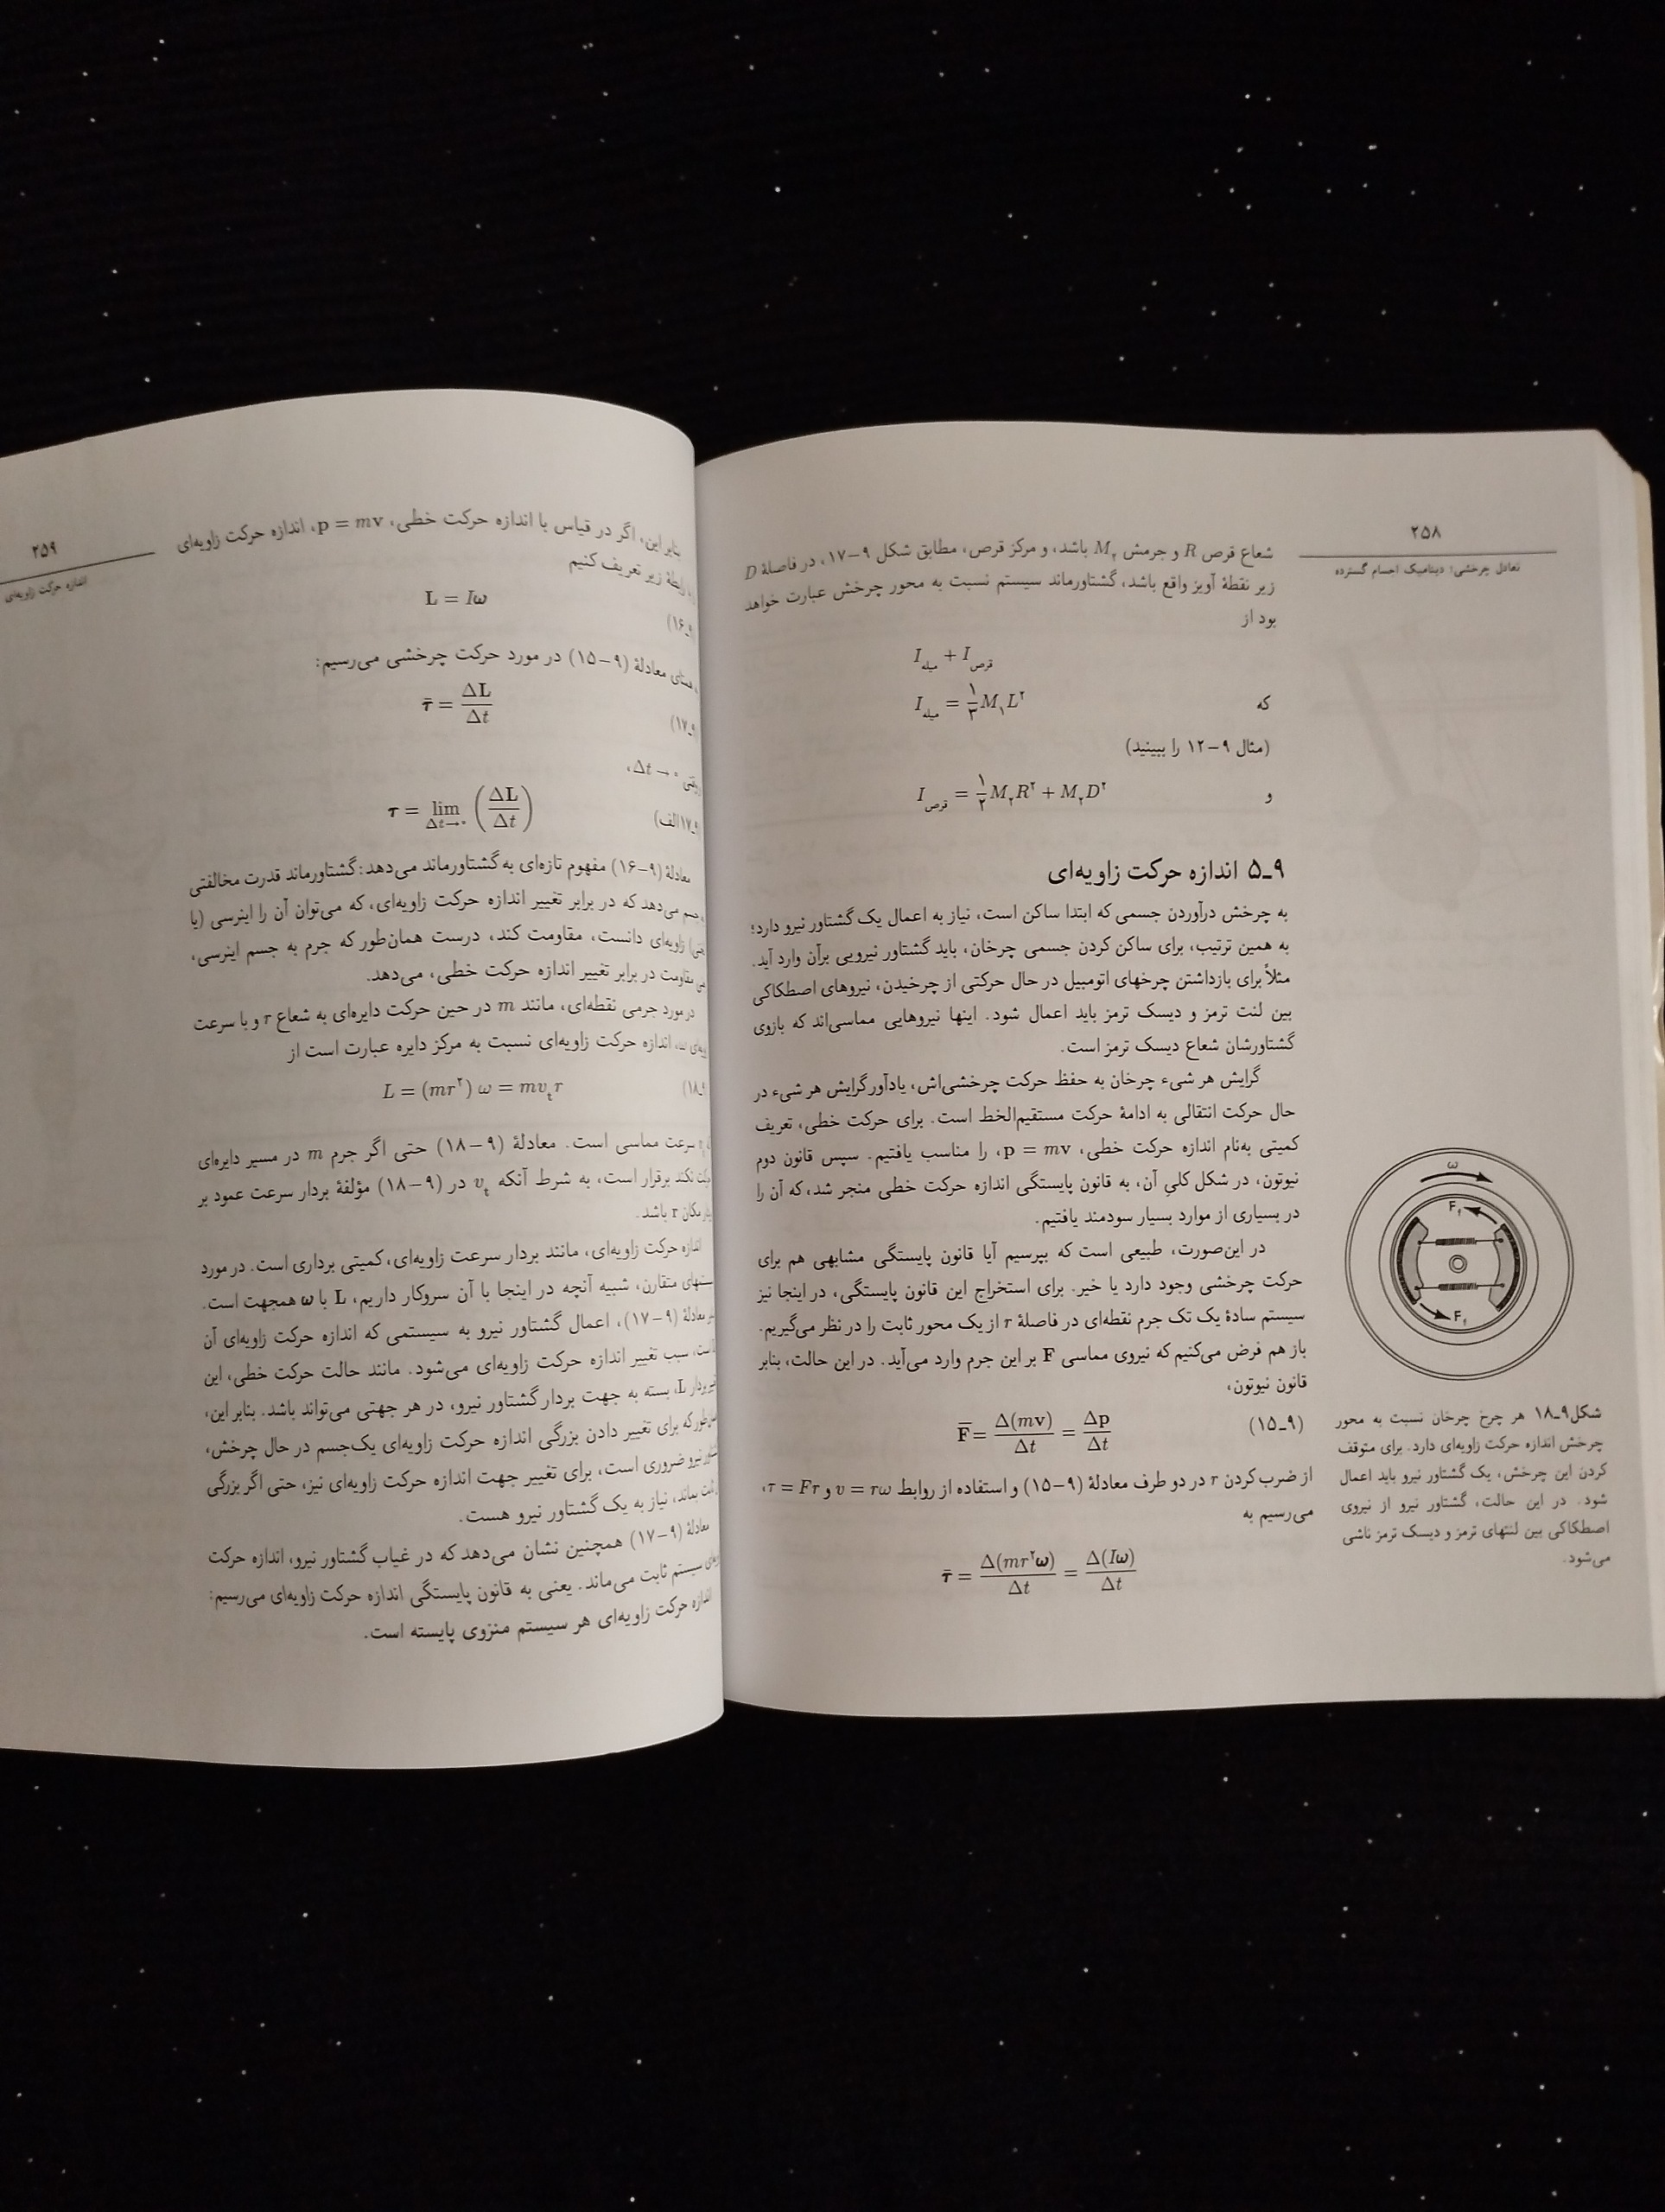 ۲۵۸
تعادل چرخشی؛ دینامیک اجسام گسترده
شعاع قرص R و جرمش M₂ باشد، و مرکز قرص، مطابق شکل ۹–۱۷، در فاصلهٔ D
زیر نقطهٔ آویز واقع باشد، گشتاورماند سیستم نسبت به محور چرخش عبارت خواهد
بود از
I میله + I قرص
که I میله = ۱/۳ M₁L²
(مثال ۹–۱۲ را ببینید)
و I قرص = ۱/۲ M₂R² + M₂D²
۹ـ۵ اندازه حرکت زاویه‌ای
به چرخش درآوردن جسمی که ابتدا ساکن است، نیاز به اعمال یک گشتاور نیرو دارد؛
به همین ترتیب، برای ساکن کردن جسمی چرخان، باید گشتاور نیرویی برآن وارد آید.
مثلاً برای بازداشتن چرخهای اتومبیل در حال حرکتی از چرخیدن، نیروهای اصطکاکی
بین لنت ترمز و دیسک ترمز باید اعمال شود. اینها نیروهایی مماسی‌اند که بازوی
گشتاورشان شعاع دیسک ترمز است.
گرایش هر شیء چرخان به حفظ حرکت چرخشی‌اش، یادآور گرایش هر شیء در
حال حرکت انتقالی به ادامهٔ حرکت مستقیم‌الخط است. برای حرکت خطی، تعریف
کمیتی به‌نام اندازه حرکت خطی، p = mv، را مناسب یافتیم. سپس قانون دوم
نیوتون، در شکل کلیِ آن، به قانون پایستگی اندازه حرکت خطی منجر شد، که آن را
در بسیاری از موارد بسیار سودمند یافتیم.
در این‌صورت، طبیعی است که بپرسیم آیا قانون پایستگی مشابهی هم برای
حرکت چرخشی وجود دارد یا خیر. برای استخراج این قانون پایستگی، در اینجا نیز
سیستم سادهٔ یک تک جرم نقطه‌ای در فاصلهٔ r از یک محور ثابت را در نظر می‌گیریم.
باز هم فرض می‌کنیم که نیروی مماسی F بر این جرم وارد می‌آید. در این حالت، بنابر
قانون نیوتون،
(۹ـ۱۵) F̄ = Δ(mv)/Δt = Δp/Δt
از ضرب کردن r در دو طرف معادلهٔ (۹–۱۵) و استفاده از روابط v = rω و τ = Fr،
می‌رسیم به
τ̄ = Δ(mr²ω)/Δt = Δ(Iω)/Δt
ω
F_f
F_f
شکل۹ـ۱۸ هر چرخ چرخان نسبت به محور
چرخش اندازه حرکت زاویه‌ای دارد. برای متوقف
کردن این چرخش، یک گشتاور نیرو باید اعمال
شود. در این حالت، گشتاور نیرو از نیروی
اصطکاکی بین لنتهای ترمز و دیسک ترمز ناشی
می‌شود.
۲۵۹
اندازه حرکت زاویه‌ای
بنابر این، اگر در قیاس با اندازه حرکت خطی، p = mv، اندازه حرکت زاویه‌ای
رابطهٔ زیر تعریف کنیم
۹ـ۱۶) L = Iω
معادلهٔ (۹–۱۵) در مورد حرکت چرخشی می‌رسیم:
۹ـ۱۷) τ̄ = ΔL/Δt
وقتی Δt → ۰،
۹ـ۱۷الف) τ = lim Δt→۰ (ΔL/Δt)
معادلهٔ (۹–۱۶) مفهوم تازه‌ای به گشتاورماند می‌دهد: گشتاورماند قدرت مخالفتی
جسم می‌دهد که در برابر تغییر اندازه حرکت زاویه‌ای، که می‌توان آن را اینرسی (یا
زاویه‌ای دانست، مقاومت کند، درست همان‌طور که جرم به جسم اینرسی،
مقاومت در برابر تغییر اندازه حرکت خطی، می‌دهد.
در مورد جرمی نقطه‌ای، مانند m در حین حرکت دایره‌ای به شعاع r و با سرعت
اندازه حرکت زاویه‌ای نسبت به مرکز دایره عبارت است از
۹ـ۱۸) L = (mr²) ω = mv_t r
سرعت مماسی است. معادلهٔ (۹–۱۸) حتی اگر جرم m در مسیر دایره‌ای
نکند برقرار است، به شرط آنکه v_t در (۹–۱۸) مؤلفهٔ بردار سرعت عمود بر
مکان r باشد.
اندازه حرکت زاویه‌ای، مانند بردار سرعت زاویه‌ای، کمیتی برداری است. در مورد
متقارن، شبیه آنچه در اینجا با آن سروکار داریم، L با ω همجهت است.
معادلهٔ (۹–۱۷)، اعمال گشتاور نیرو به سیستمی که اندازه حرکت زاویه‌ای آن
است، سبب تغییر اندازه حرکت زاویه‌ای می‌شود. مانند حالت حرکت خطی، این
بردار L، بسته به جهت بردار گشتاور نیرو، در هر جهتی می‌تواند باشد. بنابر این،
که برای تغییر دادن بزرگی اندازه حرکت زاویه‌ای یک‌جسم در حال چرخش،
نیرو ضروری است، برای تغییر جهت اندازه حرکت زاویه‌ای نیز، حتی اگر بزرگی
بماند، نیاز به یک گشتاور نیرو هست.
معادلهٔ (۹–۱۷) همچنین نشان می‌دهد که در غیاب گشتاور نیرو، اندازه حرکت
سیستم ثابت می‌ماند. یعنی به قانون پایستگی اندازه حرکت زاویه‌ای می‌رسیم:
اندازه حرکت زاویه‌ای هر سیستم منزوی پایسته است.